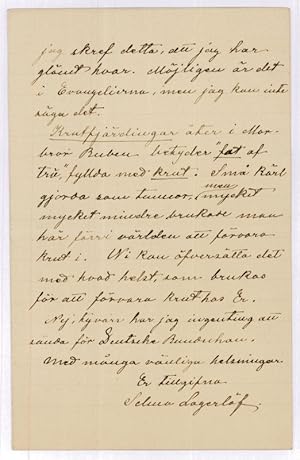 jag skref detta, att jag har
glömt hvar. Möjligen är det
i Evangelierna, men jag kan inte
säga det.
Krutfjärdingar åter i Mor-
bror Ruben betyder "fat af
trä", fyllda med krut. Små kärl
gjorda som tunnor, men mycket
mycket mindre brukade man
här förr i världen att förvara
krut i. Ni kan öfversätta det
med hvad helst, som brukas
för att förvara krut hos Er.
Nej, tyvärr har jag ingenting att
sända för Deutsche
Med många vänliga helsningar
Er tillgifna
Selma Lagerlöf.